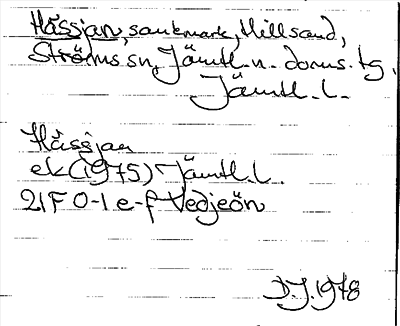 Håssjan, sankmark, Hillsand,
Ströms sn, Jämtl. n. doms. tg,
Jämtl. l.
Håssjan
ek (1975) Jämtl. l.
21F 0-1 e-f Vedjeön
D.J. 1978